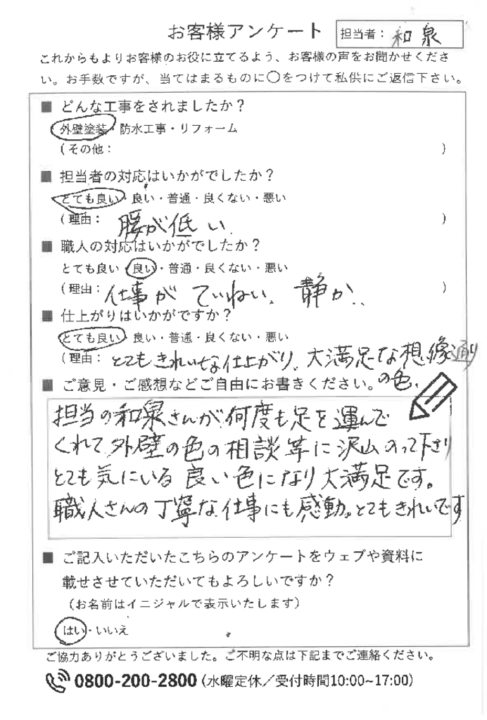 お客様アンケート
担当者: 和泉
これからもよりお客様のお役に立てるよう、お客様の声をお聞かせくださ
い。お手数ですが、当てはまるものに○をつけて私供にご返信下さい。
■ どんな工事をされましたか？
外壁塗装・防水工事・リフォーム
（その他： ）
■ 担当者の対応はいかがでしたか？
とても良い・良い・普通・良くない・悪い
（理由： 腰が低い ）
■ 職人の対応はいかがでしたか？
とても良い・良い・普通・良くない・悪い
（理由： 仕事がていねい。静か、 ）
■ 仕上がりはいかがですか？
とても良い・良い・普通・良くない・悪い
（理由： とてもきれいな仕上がり、大満足な想像通り
の色。
■ ご意見・ご感想などご自由にお書きください。
担当の和泉さんが何度も足を運んで
くれて、外壁の色の相談等に沢山のって下さり
とても気にいる良い色になり大満足です。
職人さんの丁寧な仕事にも感動。とてもきれいです
■ ご記入いただいたこちらのアンケートをウェブや資料に
載せさせていただいてもよろしいですか？
（お名前はイニシャルで表示いたします）
はい・いいえ
ご協力ありがとうございました。ご不明な点は下記までご連絡ください。
0800-200-2800（水曜定休／受付時間10:00~17:00）